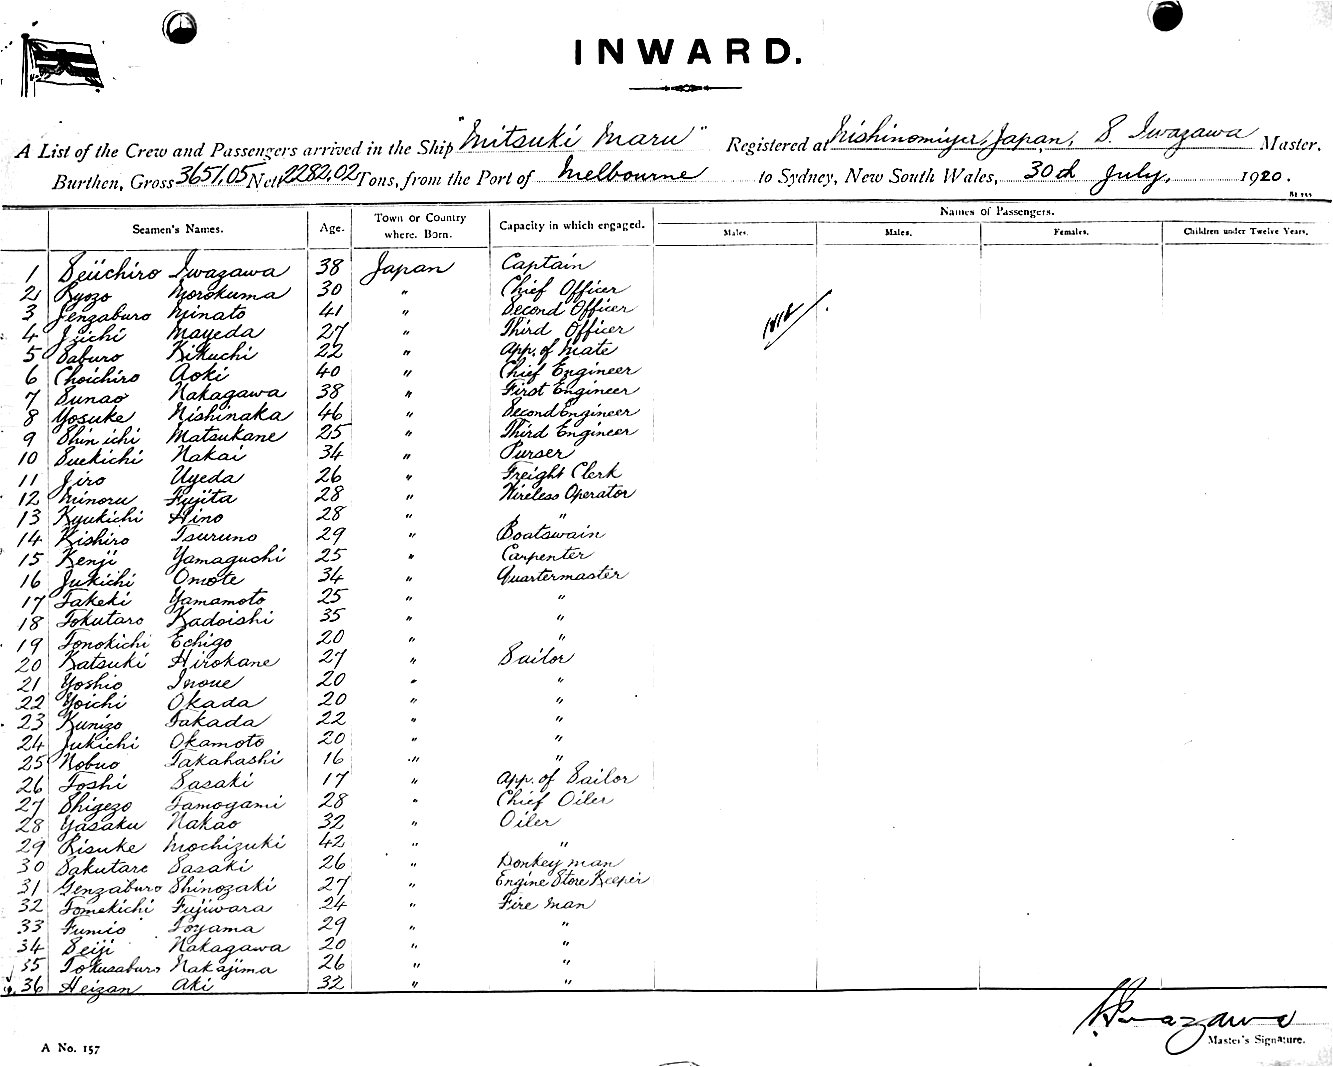 INWARD.
A List of the Crew and Passengers arrived in the Ship "Mitsuki Maru" Registered at Nishinomiya, Japan, S. Iwazawa Master.
Burthen, Gross 3651.05 Nett 2282.02 Tons, from the Port of Melbourne to Sydney, New South Wales, 30th July, 1920.
Names of Passengers.
Seamen's Names. Age. Town or Country where. Born. Capacity in which engaged. Males. Males. Females. Children under Twelve Years.
1 Seiichiro Iwazawa 38 Japan Captain
2 Ryozo Morokuma 30 " Chief Officer
3 Genzaburo Minato 41 " Second Officer
4 Juichi Mayeda 27 " Third Officer
5 Saburo Kikuchi 22 " App. of Mate
6 Choichiro Aoki 40 " Chief Engineer
7 Sunao Nakagawa 38 " First Engineer
8 Yosuke Nishinaka 46 " Second Engineer
9 Shin ichi Matsukane 25 " Third Engineer
10 Suekichi Nakai 34 " Purser
11 Jiro Uyeda 26 " Freight Clerk
12 Minoru Fujita 28 " Wireless Operator
13 Kyukichi Hino 28 " "
14 Kishiro Tsuruno 29 " Boatswain
15 Kenji Yamaguchi 25 " Carpenter
16 Jukichi Omote 34 " Quartermaster
17 Takeki Yamamoto 25 " "
18 Tokutaro Kadoishi 35 " "
19 Tonokichi Echigo 20 " "
20 Katsuki Hirokane 27 " Sailor
21 Yoshio Inoue 20 " "
22 Yoichi Okada 20 " "
23 Kunizo Takada 22 " "
24 Jukichi Okamoto 20 " "
25 Nobuo Takahashi 16 " "
26 Toshi Sasaki 17 " App. of Sailor
27 Shigezo Tamogami 28 " Chief Oiler
28 Yasaku Nakao 32 " Oiler
29 Risuke Mochizuki 42 " "
30 Sakutaro Sasaki 26 " Donkey man
31 Genzaburo Shinozaki 27 " Engine Store Keeper
32 Tomekichi Fujiwara 24 " Fire man
33 Fumio Toyama 29 " "
34 Seiji Nakagawa 20 " "
35 Tokusaburo Nakajima 26 " "
36 Heizan Aki 32 " "
S. Iwazawa
Master's Signature.
A No. 157